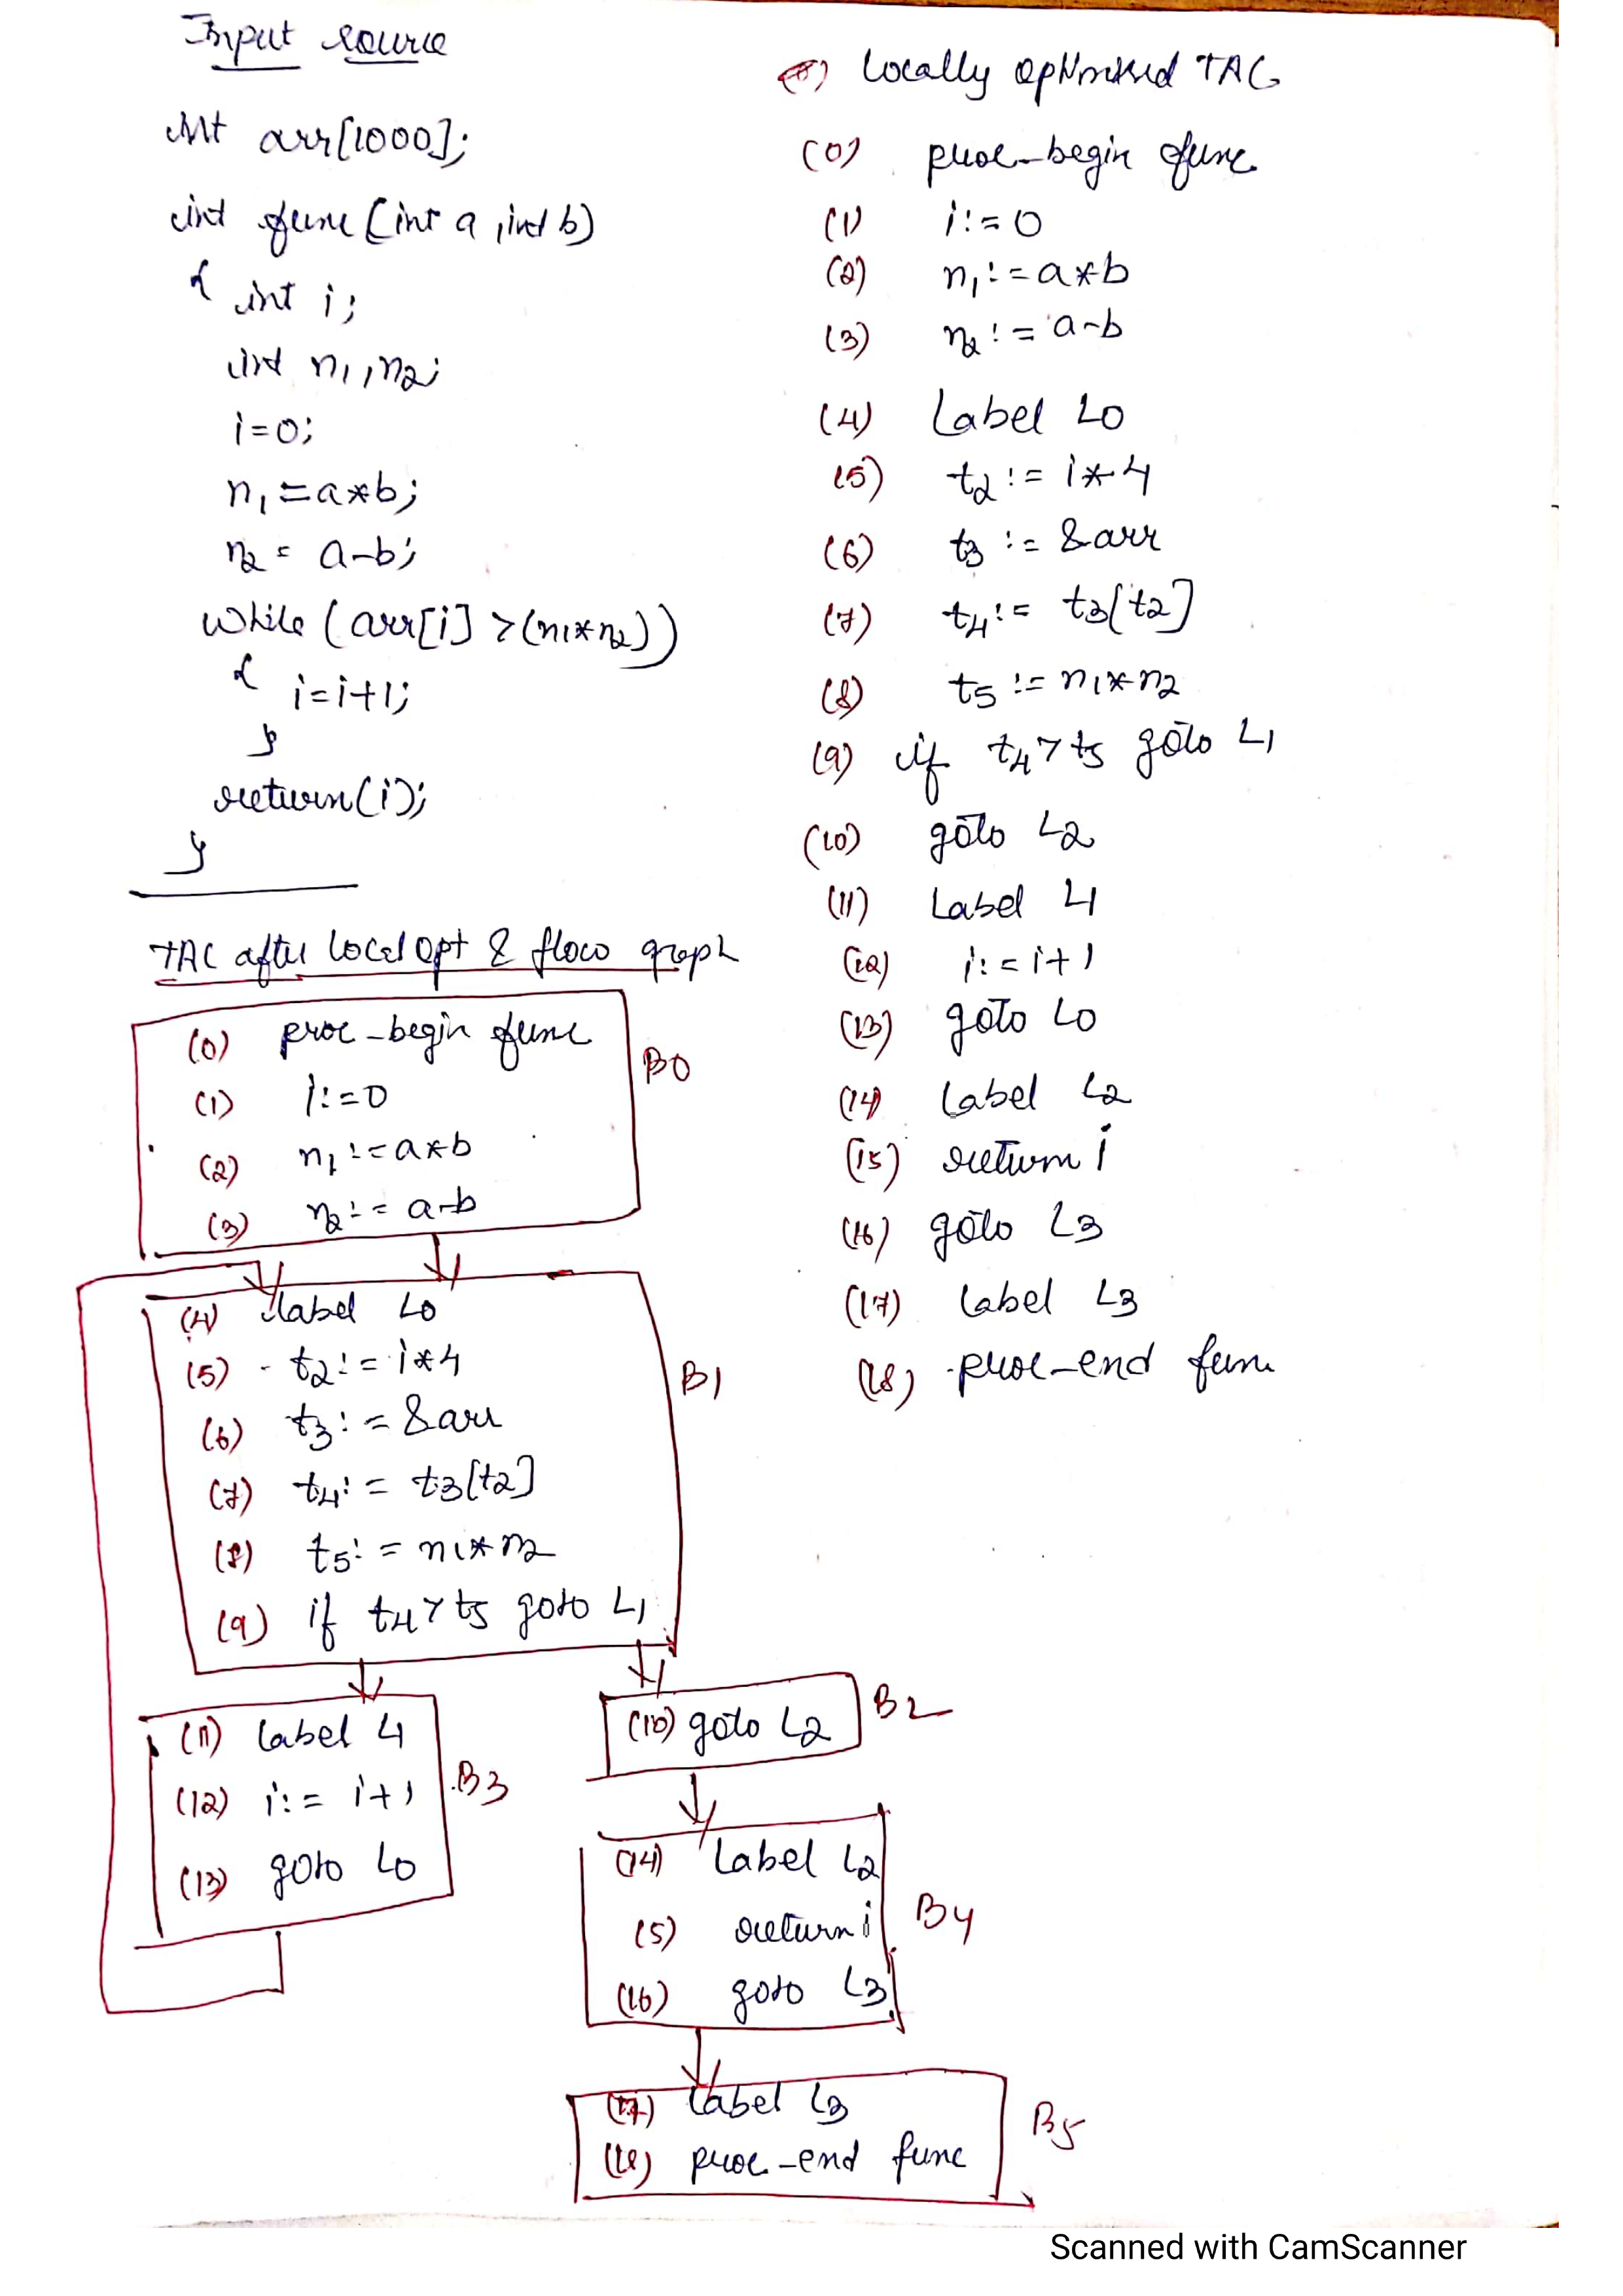 Input source
int arr[1000];
int func(int a, int b)
{ int i;
int n1, n2;
i=0;
n1=a*b;
n2 = a-b;
while (arr[i] >(n1*n2))
{ i=i+1;
}
return(i);
}
TAC after local opt & flow graph
(0) proc-begin func
(1) i:=0
(2) n1:=a*b
(3) n2:= a-b
B0
(4) label L0
(5) t2:= i*4
(6) t3:= &arr
(7) t4:= t3[t2]
(8) t5:= n1*n2
(9) if t4>t5 goto L1
B1
(11) label L1
(12) i:= i+1
(13) goto L0
B3
(10) goto L2
B2
(14) label L2
(5) return i
(16) goto L3
B4
(17) label L3
(18) proc-end func
B5
locally optimised TAC
(0) proc-begin func
(1) i:=0
(2) n1:=a*b
(3) n2:=a-b
(4) Label L0
(5) t2:= i*4
(6) t3:= &arr
(7) t4:= t3[t2]
(8) t5:= n1*n2
(9) if t4>t5 goto L1
(10) goto L2
(11) Label L1
(12) i:=i+1
(13) goto L0
(14) Label L2
(15) return i
(16) goto L3
(17) Label L3
(18) proc-end func
Scanned with CamScanner